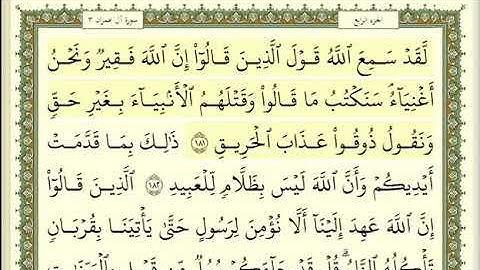 الجزء الرابع
سورة آل عمران ٣
لَّقَدْ سَمِعَ اللَّهُ قَوْلَ الَّذِينَ قَالُوٓا۟ إِنَّ اللَّهَ فَقِيرٌ وَنَحْنُ
أَغْنِيَآءُ ۘ سَنَكْتُبُ مَا قَالُوا۟ وَقَتْلَهُمُ الْأَنۢبِيَآءَ بِغَيْرِ حَقٍّ
وَنَقُولُ ذُوقُوا۟ عَذَابَ الْحَرِيقِ ١٨١ ذَٰلِكَ بِمَا قَدَّمَتْ
أَيْدِيكُمْ وَأَنَّ اللَّهَ لَيْسَ بِظَلَّامٍ لِّلْعَبِيدِ ١٨٢ الَّذِينَ قَالُوٓا۟
إِنَّ اللَّهَ عَهِدَ إِلَيْنَآ أَلَّا نُؤْمِنَ لِرَسُولٍ حَتَّىٰ يَأْتِيَنَا بِقُرْبَانٍ
تَأْكُلُهُ النَّارُ ۗ قُلْ قَدْ جَآءَكُمْ رُسُلٌ مِّن قَبْلِى بِالْبَيِّنَٰتِ